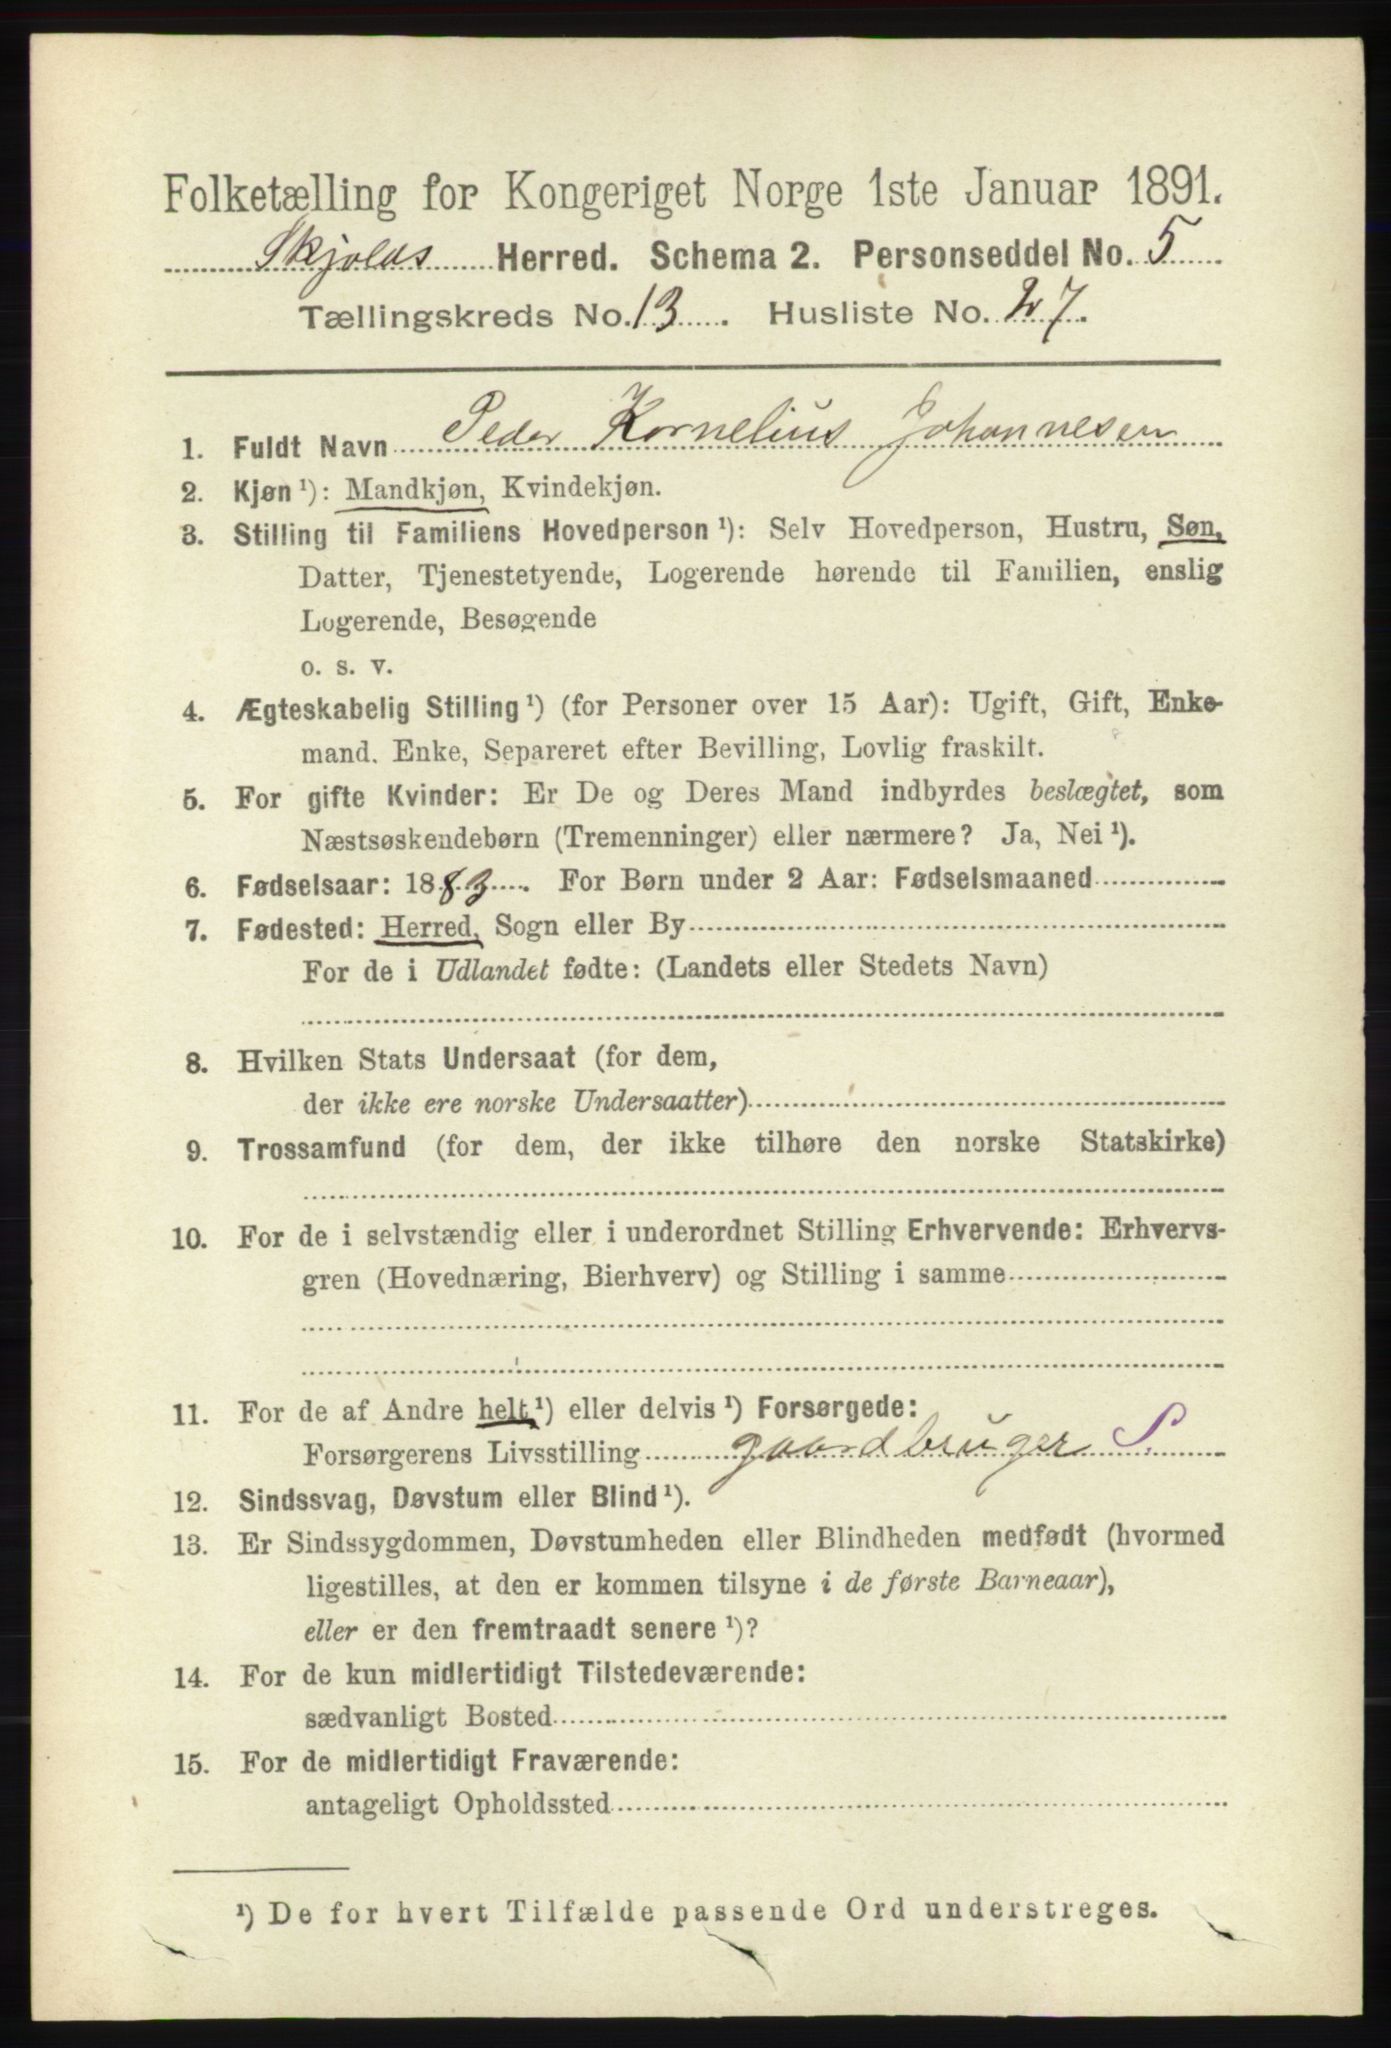 Folketælling for Kongeriget Norge 1ste Januar 1891.
Skjolds Herred. Schema 2. Personseddel No. 5
Tællingskreds No. 13. Husliste No. 27.
1. Fuldt Navn Peder Kornelius Johannesen
2. Kjøn ¹): Mandkjøn, Kvindekjøn.
3. Stilling til Familiens Hovedperson ¹): Selv Hovedperson, Hustru, Søn,
Datter, Tjenestetyende, Logerende hørende til Familien, enslig
Logerende, Besøgende
o. s. v.
4. Ægteskabelig Stilling ¹) (for Personer over 15 Aar): Ugift, Gift, Enke-
mand, Enke, Separeret efter Bevilling, Lovlig fraskilt.
5. For gifte Kvinder: Er De og Deres Mand indbyrdes beslægtet, som
Næstsøskendebørn (Tremenninger) eller nærmere? Ja, Nei ¹).
6. Fødselsaar: 1883. For Børn under 2 Aar: Fødselsmaaned
7. Fødested: Herred, Sogn eller By
For de i Udlandet fødte: (Landets eller Stedets Navn)
8. Hvilken Stats Undersaat (for dem,
der ikke ere norske Undersaatter)
9. Trossamfund (for dem, der ikke tilhøre den norske Statskirke)
10. For de i selvstændig eller i underordnet Stilling Erhvervende: Erhvervs-
gren (Hovednæring, Bierhverv) og Stilling i samme
11. For de af Andre helt ¹) eller delvis ¹) Forsørgede:
Forsørgerens Livsstilling gaardbruger S.
12. Sindssvag, Døvstum eller Blind ¹).
13. Er Sindssygdommen, Døvstumheden eller Blindheden medfødt (hvormed
ligestilles, at den er kommen tilsyne i de første Barneaar),
eller er den fremtraadt senere ¹)?
14. For de kun midlertidigt Tilstedeværende:
sædvanligt Bosted
15. For de midlertidigt Fraværende:
antageligt Opholdssted
¹) De for hvert Tilfælde passende Ord understreges.